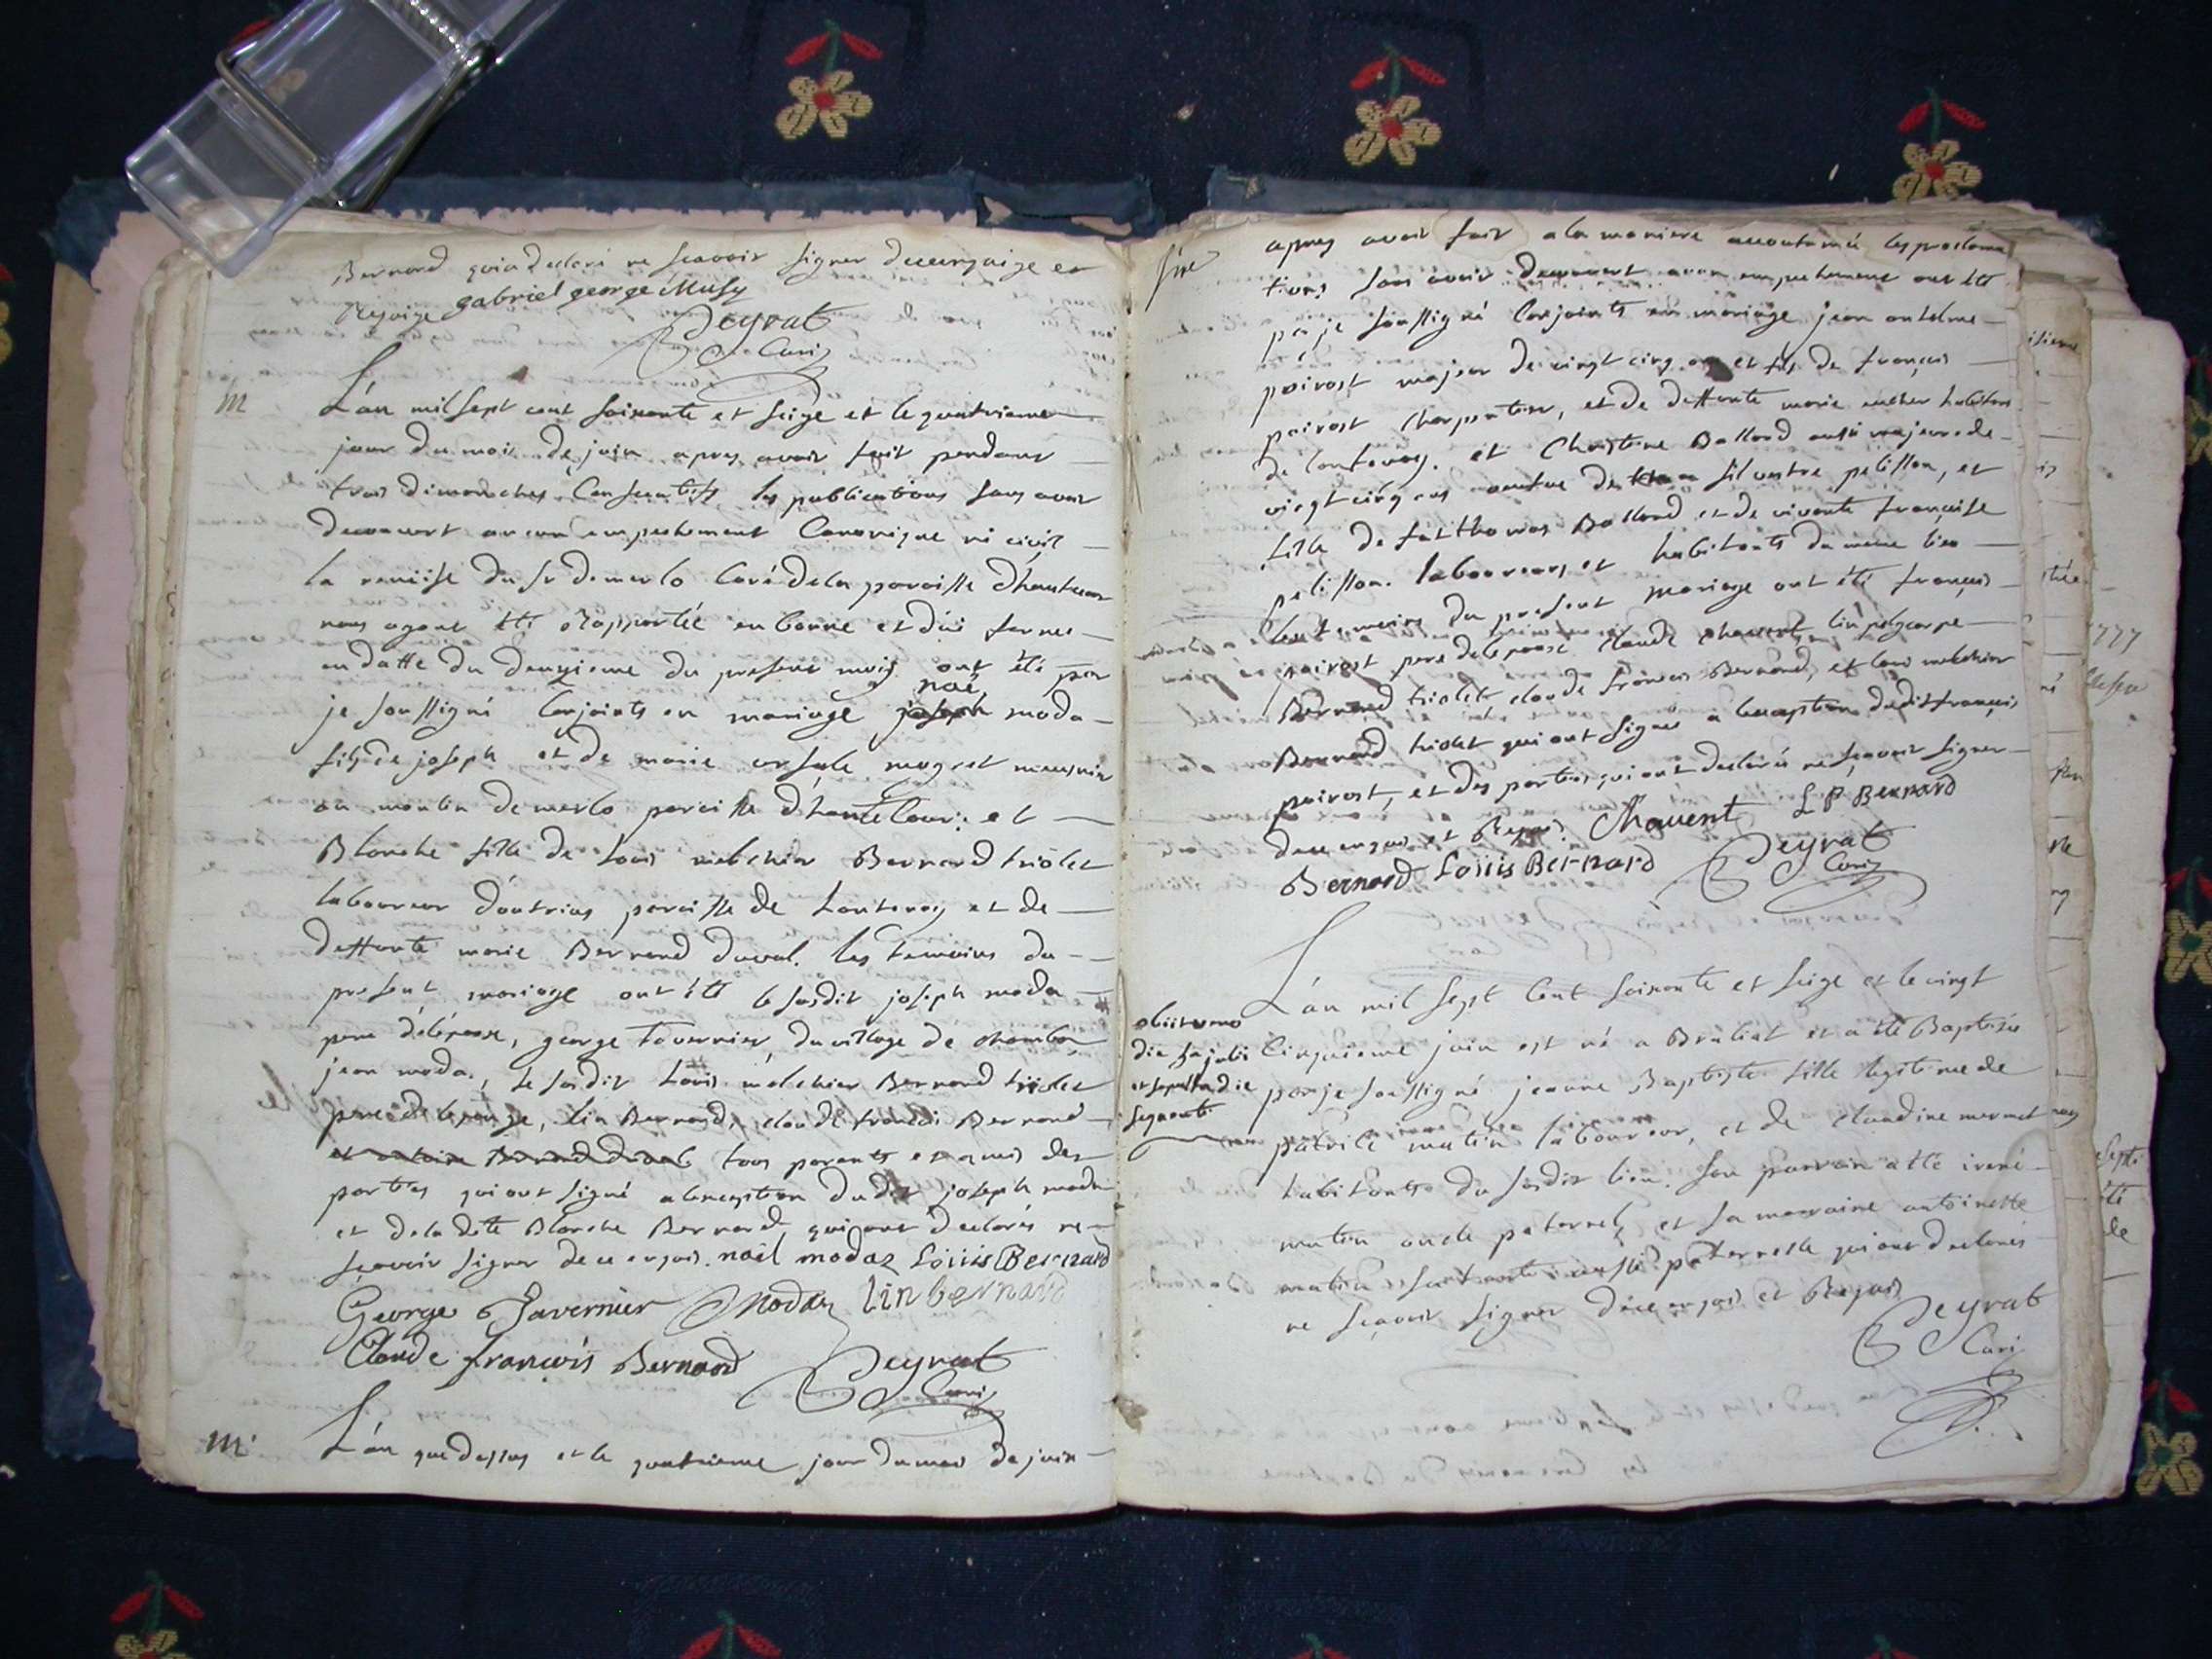 Bernard qui a declaré ne scavoir signer de ce enquise et
Requise gabriel george Musy
Deyrat
Curé
M L'an mil sept cent soixante et seize et le quatrieme
jour du mois de juin apres avoir fait pendant
trois dimanches Consecutifs les publications sans avoir
decouvert aucun empeschement Canonique ni civil
la remise du sr demerlo Curé de la paroisse d'hautecour
nous ayant été Rapportée en bonne et düe forme
en datte du deuxieme du present mois ont été par
noé
je soussigné Conjoints en mariage joseph moda
fils de joseph et de marie ursule meunier
au moulin de merlo paroisse d'hautecour: et
Blanche fille de Louis melchior Bernard triolet
laboureur d'outriaz paroisse de Lantenay et de
deffunte marie Bernard duval. les temoins du
present mariage ont été le susdit joseph moda
pere de l'epoux, george tavernier du village de
jean moda, le susdit Louis melchior Bernard triolet
pere de l'epouse, lin Bernard, claude francois Bernard
et antoine Bernard duval tous parents et amis des
parties qui ont signé a l'exception dudit joseph moda
et de la dite Blanche Bernard qui ont declarés ne
sçavoir signer de ce enquis. noël modaz Loüis Bernard
George Tavernier Modaz lin bernard
Claude françois Bernard Deyrat
Curé
M. L'an que dessus et le quatrieme jour du mois de juin
apres avoir fait a la maniere accoutumée les proclama
tions sans avoir decouvert aucun empechement ont été
par je soussigné Conjoints en mariage jean antelme
poirost majeur de vingt cinq ans et fils de françois
poirost charpentier, et de deffunte marie habitans
de lantenay. et Christine Ballard aussi majeure de
vingt cinq ans veufve de silvestre pelisson, et
fille de fut thomas Ballard et de vivante françoise
pelisson. laboureurs et habitants du meme lieu
les temoins du present mariage ont été françois
poirost pere de l'epoux Claude Chavent lin policarpe
Bernard triolet claude francois Bernard, et louis melchior
Bernard triolet qui ont signé a l'exception dudit françois
poirost, et des parties qui ont declarés ne sçavoir signer
de ce enquis et Requis. Chavent L P Bernard
Bernard Loüis Bernard Deyrat
Curé
L'an mil sept Cent soixante et seize et le vingt
obiit
die 3a julii
et sepulta die
sequenti
Cinquieme juin est né a Bruliat et a été Baptisée
par je soussigné jeanne Baptiste fille legitime de
patrice mutin laboureur, et de claudine mermet
habitants du susdit lieu. son parrain a été irené
mutin oncle paternel, et sa marraine antoinette
mutin sa tante aussi paternelle qui ont declarés
ne sçavoir signer de ce enquis et Requis
Deyrat
Curé